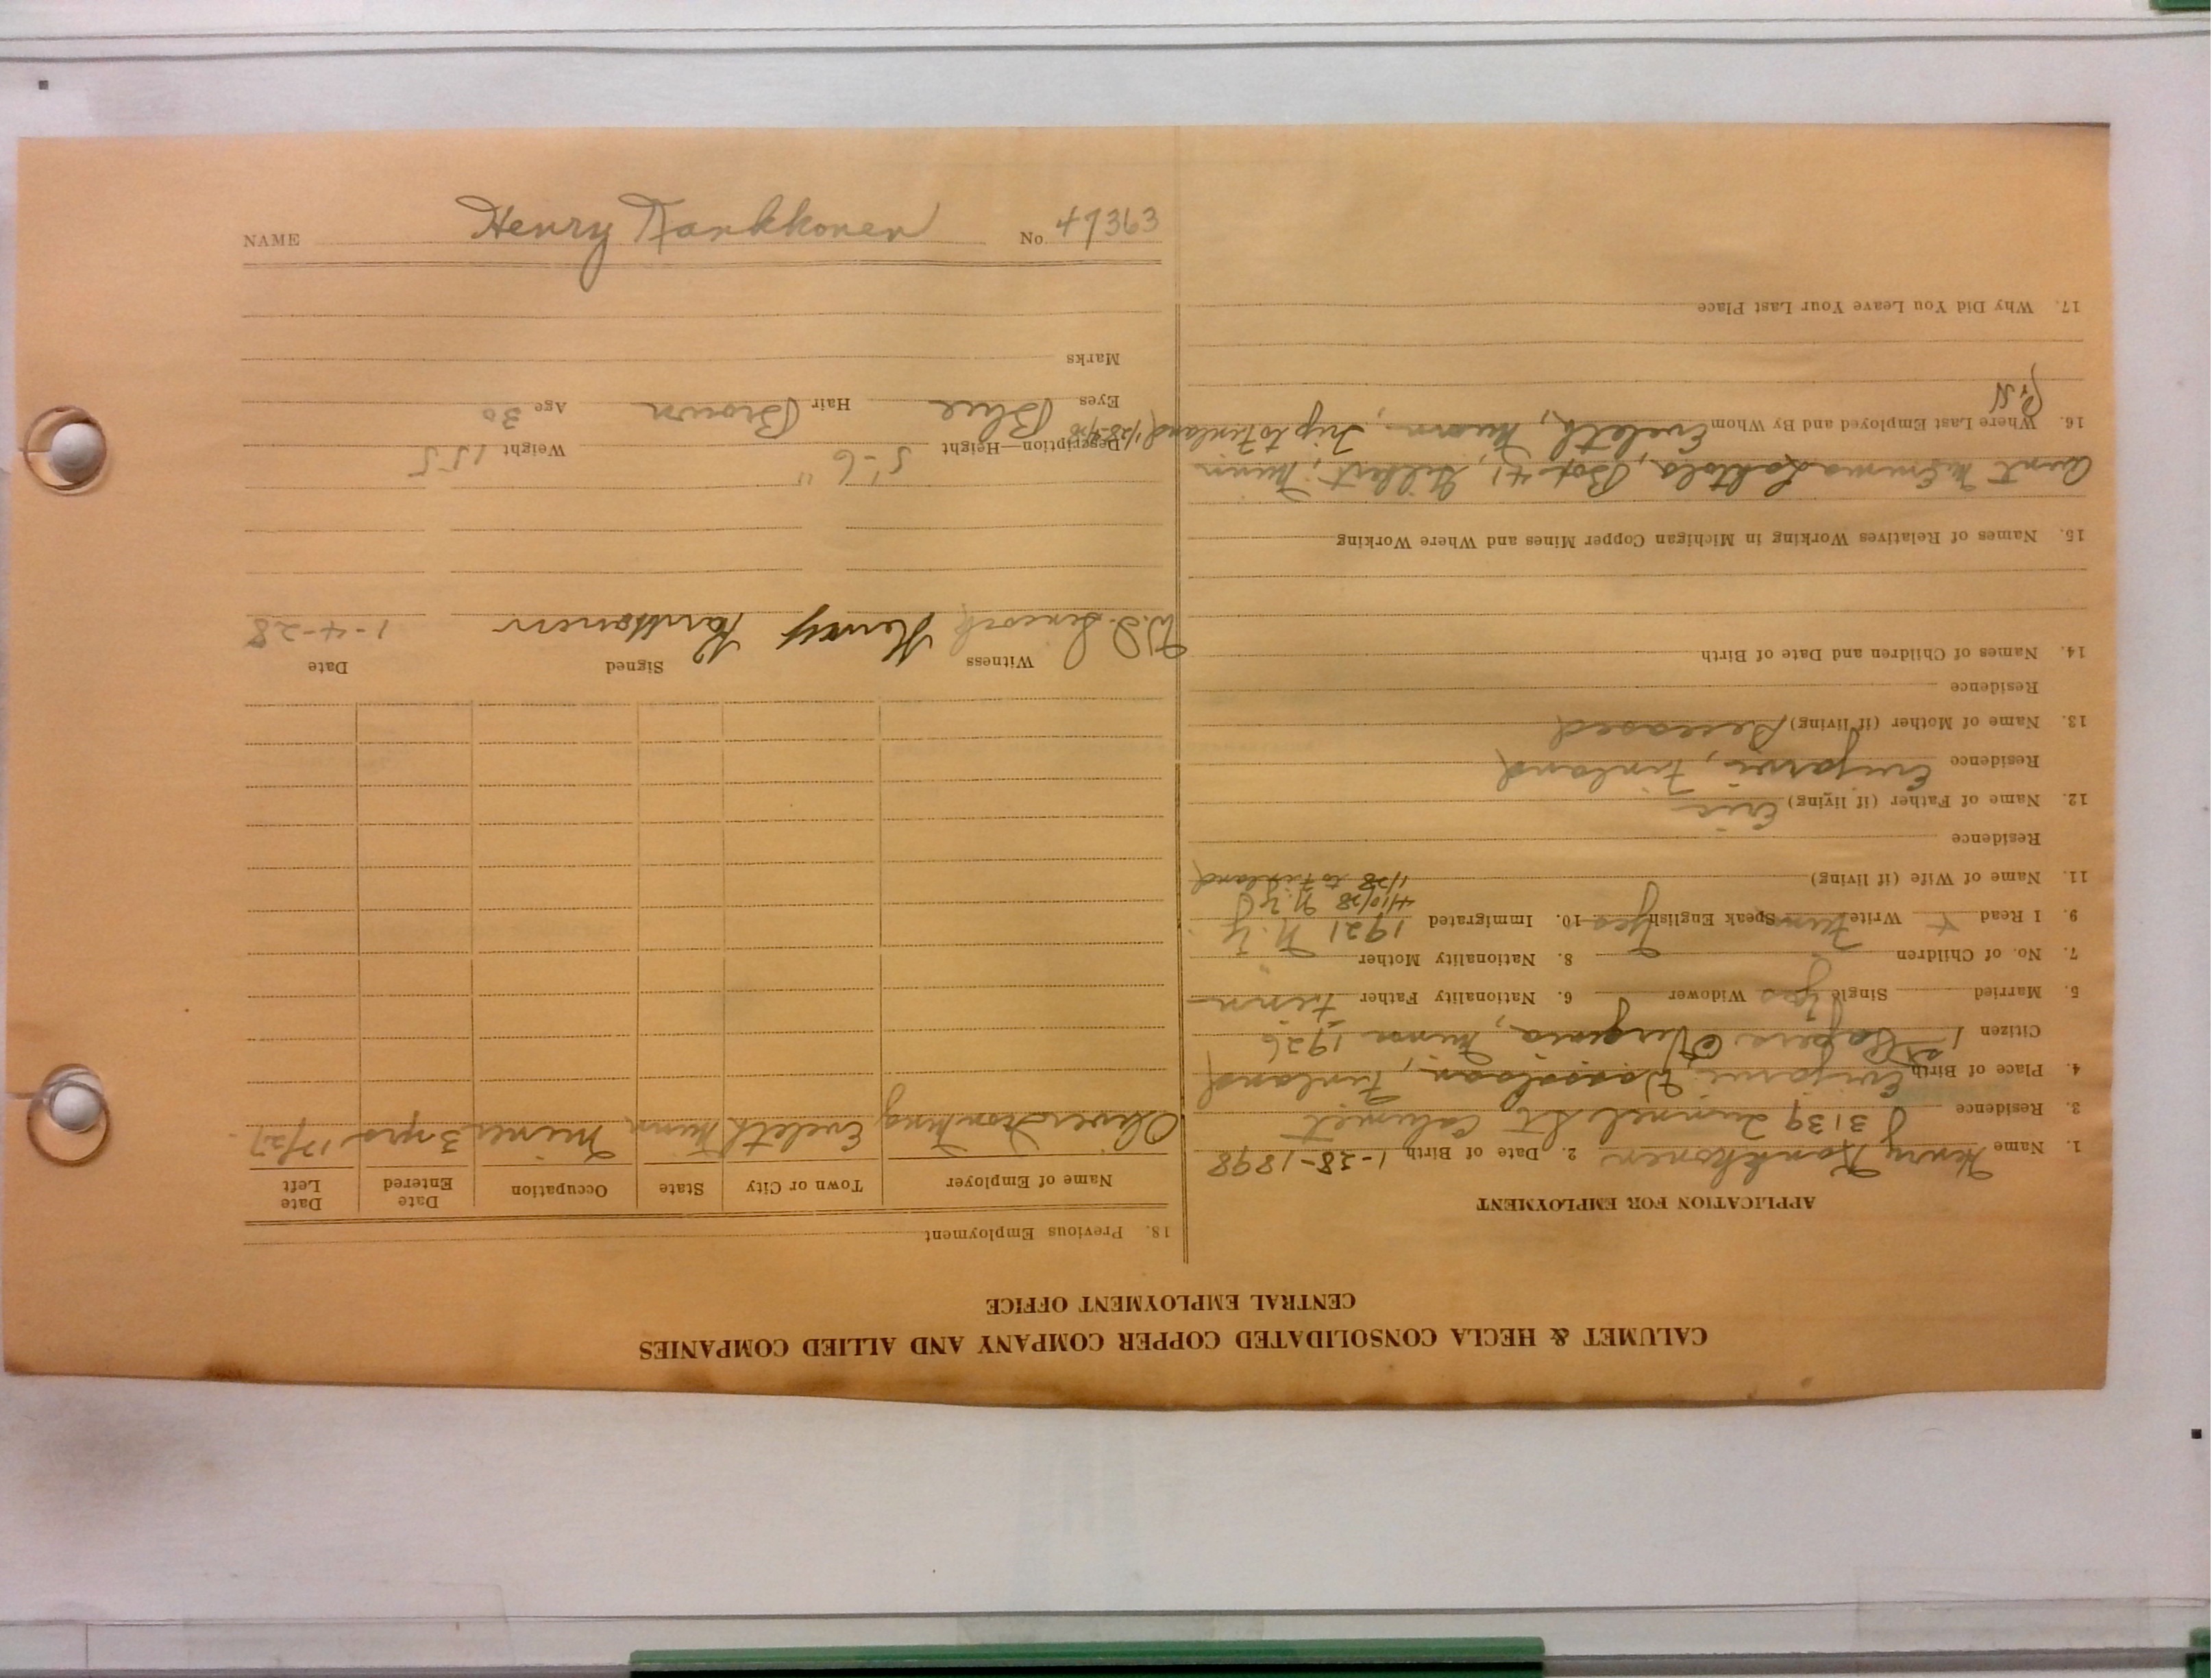 CALUMET & HECLA CONSOLIDATED COPPER COMPANY AND ALLIED COMPANIES
CENTRAL EMPLOYMENT OFFICE
APPLICATION FOR EMPLOYMENT
1. Name Henry Kankkonen 2. Date of Birth 1-28-1898
3. Residence 3139 St Calumet
4. Place of Birth Evijarvi, Finland
Citizen 1st Papers Virginia, Minn 1926
5. Married Single yes Widower 6. Nationality Father Finn
7. No. of Children 8. Nationality Mother
9. I Read Write Finn Speak English yes 10. Immigrated 1921 N.Y.
4/10/28 N.Y.
1/28 to Finland
11. Name of Wife (if living)
Residence
12. Name of Father (if living) Eric
Residence Evijarvi, Finland
13. Name of Mother (if living) Deceased
Residence
14. Names of Children and Date of Birth
15. Names of Relatives Working in Michigan Copper Mines and Where Working
Aunt Box 41, Gilbert, Minn
16. Where Last Employed and By Whom Eveleth, Minn, Trip to Finland
17. Why Did You Leave Your Last Place
18. Previous Employment
Name of Employer Town or City State Occupation Date Entered Date Left
Oliver Iron Mng Eveleth Minn Miner 3 yrs 12/27
Witness Signed Date
W.J. Henry Kankkonen 1-4-28
Description—Height 5'-6" Weight 155
Eyes Blue Hair Brown Age 30
Marks
NAME Henry Kankkonen No. 47363